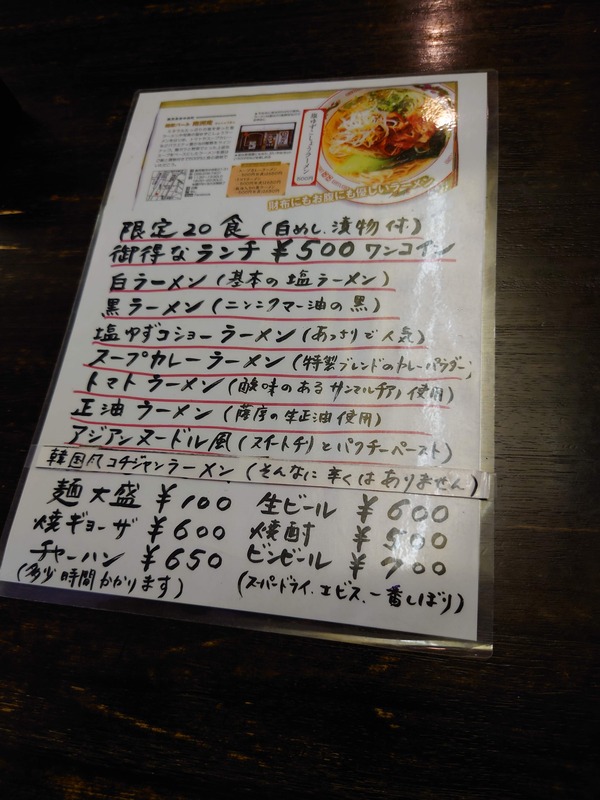 塩ゆずこしょうラーメン
財布にもお腹にも優しいラーメン
限定20食(白めし、漬物付)
御得なランチ ¥500 ワンコイン
白ラーメン(基本の塩ラーメン)
黒ラーメン(ニンニクマー油の黒)
塩ゆずコショーラーメン(あっさりで人気)
スープカレーラーメン(特製ブレンドのカレーパウダー)
トマトラーメン(酸味のあるサンマルチアノ使用)
正油ラーメン(薩摩の生正油使用)
アジアンヌードル風(スイートチリとパクチーペースト)
韓国風コチジャンラーメン(そんなに辛くはありません)
麺大盛 ¥100 生ビール ¥600
焼ギョーザ ¥600 焼酎 ¥500
チャーハン ¥650 ビンビール ¥700
(多少時間かかります) (スーパードライ、エビス、一番しぼり)